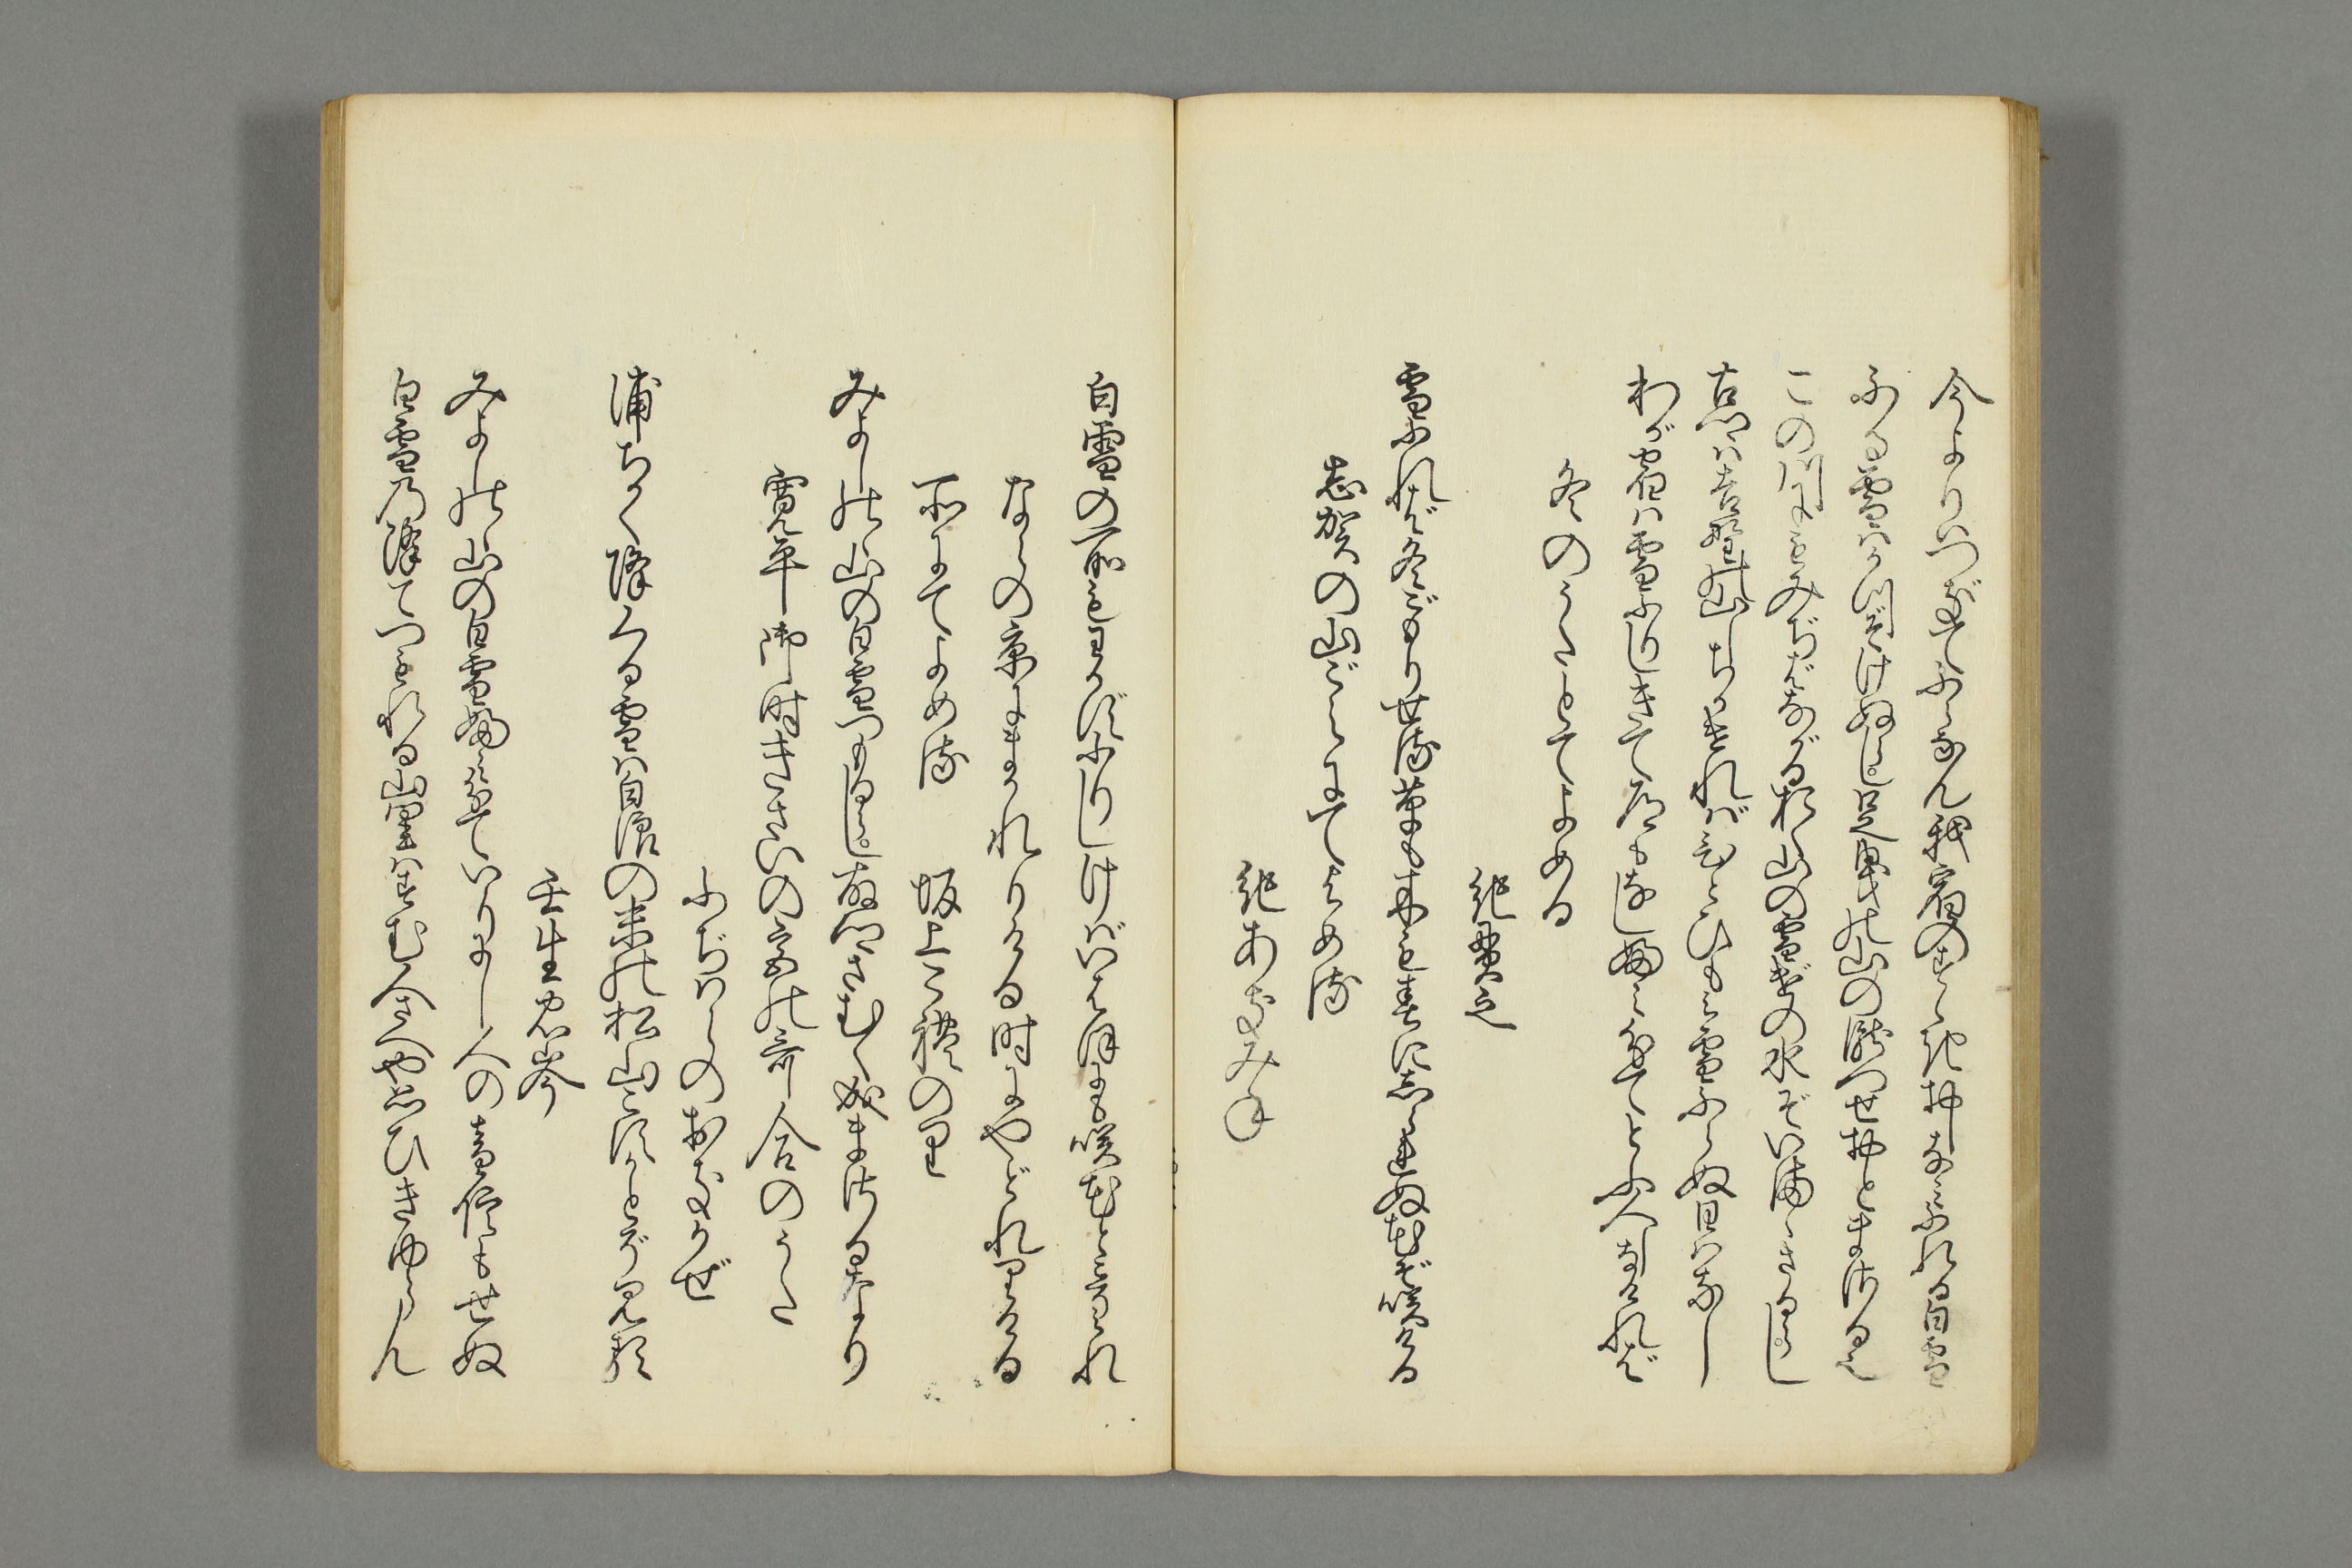 今よりはつぎてふらなん我宿のすゝきおしなみふれる白雪
ふる雪はかつぞけぬらし足曳の山の瀧つせおとまさるなり
この川にもみぢばながる於く山の雪げの水ぞいままさるらし
古郷は吉野の山しちかければひとひもみ雪ふらぬ日はなし
わが宿は雪ふりしきて道もなしふみわけてとふ人しなければ
冬のうたとてよめる
紀貫之
雪ふれば冬ごもりせる草も木も春にしられぬ花ぞ咲ける
志賀の山ごえにてよめる
紀あきみね
白雪の所もわかずふりしけばいはほにも咲花とこそみれ
ならの京にまかれりける時にやどれりける
所にてよめる　坂上これのり
みよしのゝ山の白雪つもるらし故郷さむく成まさるなり
寛平御時きさいの宮の哥合のうた
ふぢはらのおきかぜ
浦ちかく降くる雪は白浪の末の松山こすかとぞ見る
壬生忠岑
みよしのゝ山の白雪ふみ分ていりにし人の音信もせぬ
白雪の降てつもれる山里はすむ人さへや思ひきゆらん